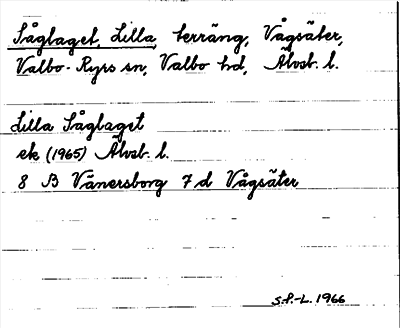 Såglaget, Lilla, terräng, Vågsäter,
Valbo-Ryrs sn, Valbo hd, Älvsb. l.
Lilla Såglaget
ek (1965) Älvsb. l.
8 B Vänersborg 7 d Vågsäter
S.P.-L. 1966